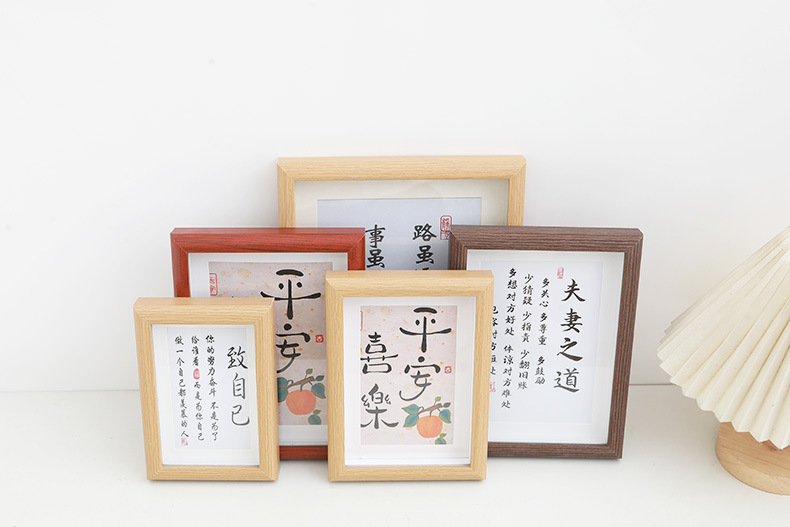 路虽
事虽
平安
致自己
你的努力奋斗 不是为了
给谁看 而是为你自己
做一个自己都羡慕的人
平安
喜樂
夫妻之道
多关心 多尊重 多鼓励
少猜疑 少指责 少翻旧账
多想对方好处 体谅对方难处
包容对方短处